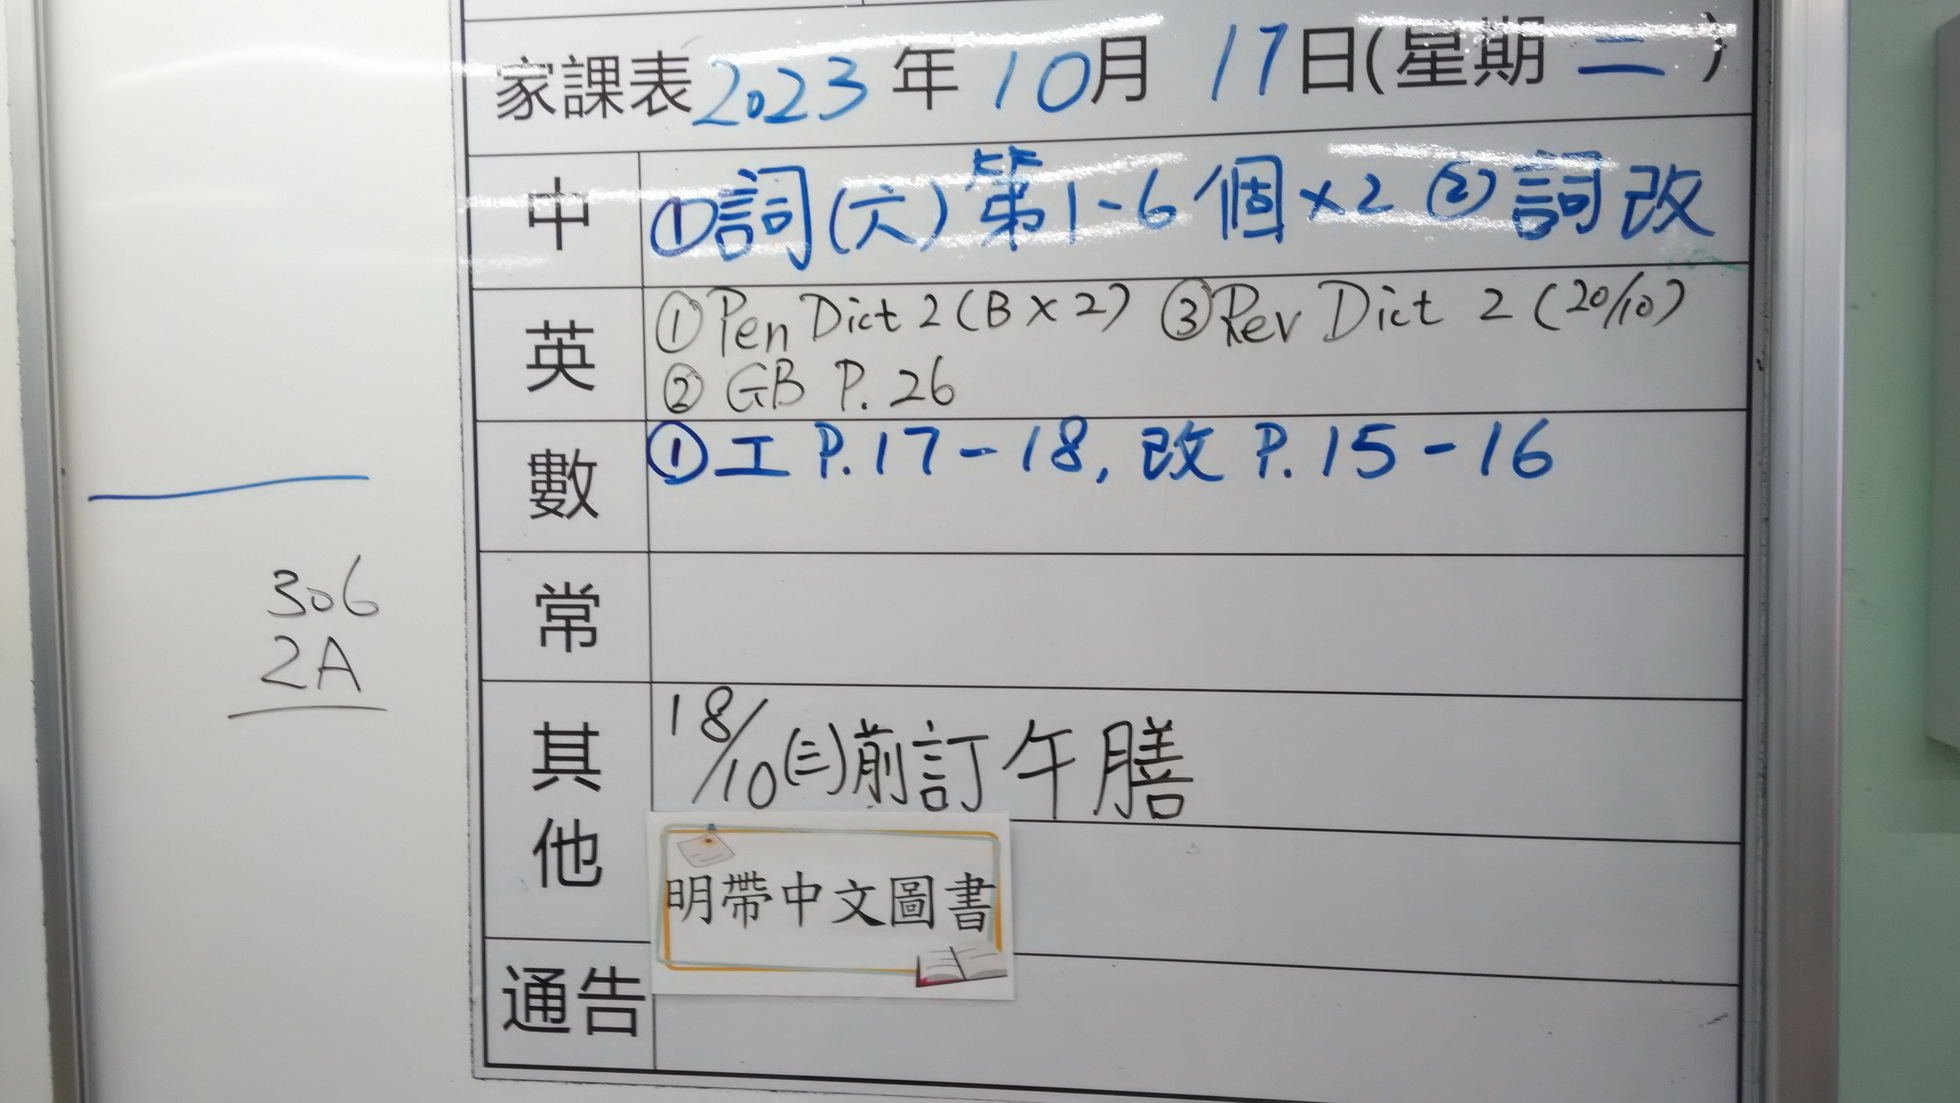 家課表 2023 年 10 月 17 日(星期 二 )
中 ①詞(六)第1-6個×2 ②詞改
英 ①Pen Dict 2 (B×2) ③Rev Dict 2 (20/10)
② GB P. 26
數 ①工 P.17-18, 改 P.15-16
常
306
2A
其他 18/10(三)前訂午膳
明帶中文圖書
通告